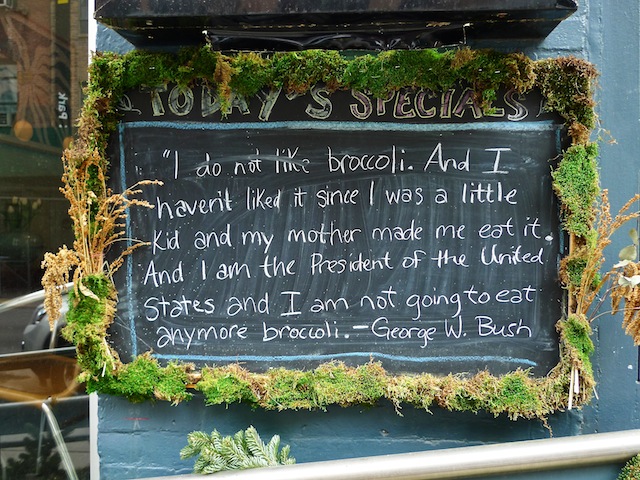 TODAY'S SPECIALS
"I do not like broccoli. And I
haven't liked it since I was a little
Kid and my mother made me eat it.
And I am the President of the United
States and I am not going to eat
anymore broccoli. - George W. Bush